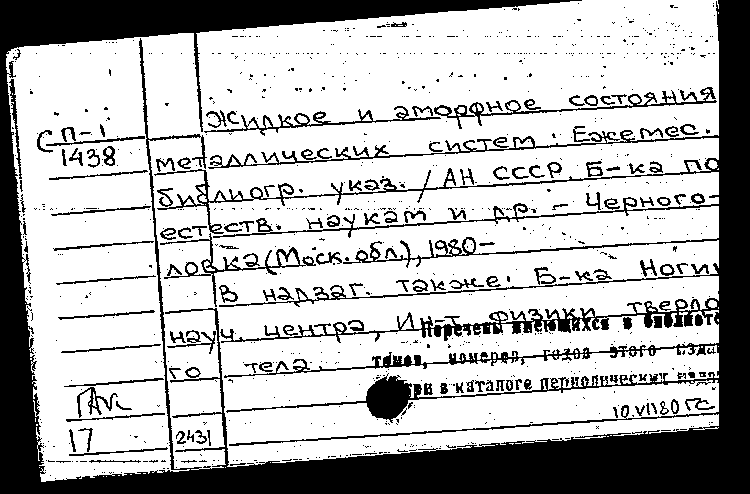 СП-1
1438
Жидкое и аморфное состояния
металлических систем: Ежемес.
библиогр. указ. / АН СССР. Б-ка по
естеств. наукам и др. - Черного-
ловка (Моск. обл.), 1980-
В надзаг. также: Б-ка Ногин
науч. центра, Ин-т физики твердо
го тела.
Перечень имеющихся в библиоте
томов, номеров, годов этого изда
три в каталоге периодических
17
2431
10.VII80